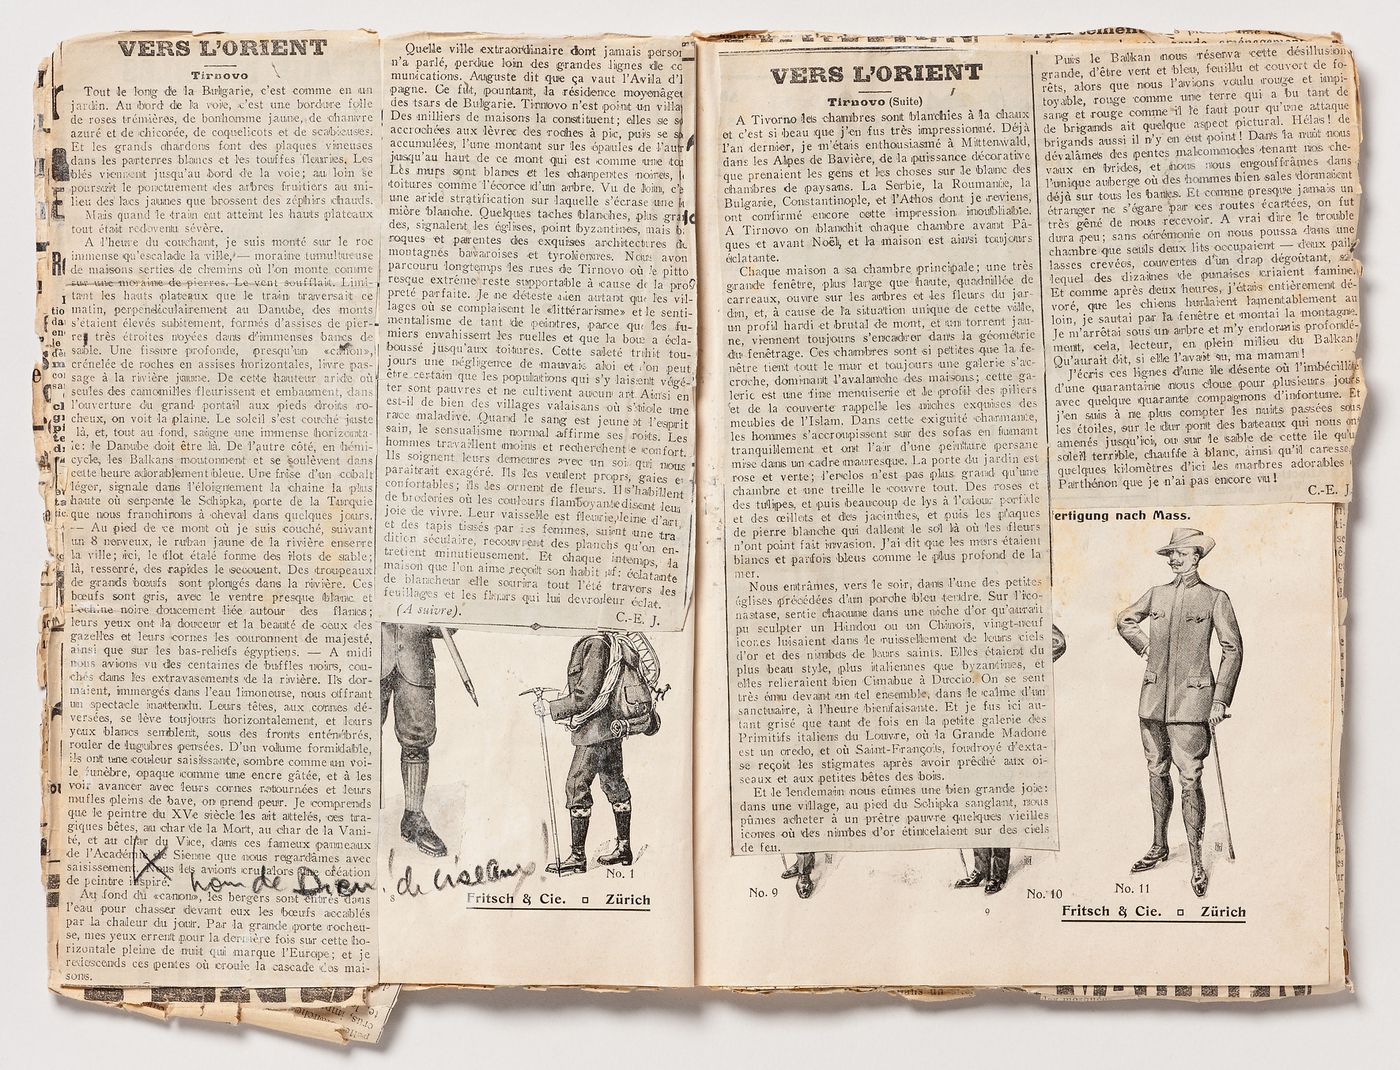 VERS L'ORIENT
Tirnovo
Tout le long de la Bulgarie, c'est comme en un
jardin. Au bord de la voie, c'est une bordure folle
de roses trémières, de bonhomme jaune, de chanvre
azuré et de chicorée, de coquelicots et de scabieuses.
Et les grands chardons font des plaques vineuses
dans les parterres blancs et les touffes fleuries. Les
blés viennent jusqu'au bord de la voie; au loin se
poursuit le ponctuement des arbres fruitiers au mi-
lieu des lacs jaunes que brossent des zéphirs chauds.
Mais quand le train eut atteint les hauts plateaux
tout était redevenu sévère.
A l'heure du couchant, je suis monté sur le roc
immense qu'escalade la ville, — moraine tumultueuse
de maisons serties de chemins où l'on monte comme
sur une moraine de pierres. Le vent soufflait. Limi-
tant les hauts plateaux que le train traversait ce
matin, perpendiculairement au Danube, des monts
s'étaient élevés subitement, formés d'assises de pier-
re très étroites noyées dans d'immenses bancs de
sable. Une fissure profonde, presqu'un «canon»,
crénelée de roches en assises horizontales, livre pas-
sage à la rivière jaune. De cette hauteur aride où
seules des camomilles fleurissent et embaument, dans
l'ouverture du grand portail aux pieds droits ro-
cheux, on voit la plaine. Le soleil s'est couché juste
là, et, tout au fond, saigne une immense horizonta-
le: le Danube doit être là. De l'autre côté, en hémi-
cycle, les Balkans moutonnent et se soulèvent dans
cette heure adorablement bleue. Une frise d'un cobalt
léger, signale dans l'éloignement la chaîne la plus
haute où serpente le Schipka, porte de la Turquie
que nous franchirons à cheval dans quelques jours.
— Au pied de ce mont où je suis couché, suivant
un 8 nerveux, le ruban jaune de la rivière enserre
la ville; ici, le flot étalé forme des îlots de sable;
là, resserré, des rapides le secouent. Des troupeaux
de grands bœufs sont plongés dans la rivière. Ces
bœufs sont gris, avec le ventre presque blanc et
l'échine noire doucement liée autour des flancs;
leurs yeux ont la douceur et la beauté de ceux des
gazelles et leurs cornes les couronnent de majesté,
ainsi que sur les bas-reliefs égyptiens. — A midi
nous avions vu des centaines de buffles noirs, cou-
chés dans les extravasements de la rivière. Ils dor-
maient, immergés dans l'eau limoneuse, nous offrant
un spectacle inattendu. Leurs têtes, aux cornes dé-
versées, se lève toujours horizontalement, et leurs
yeux blancs semblent, sous des fronts enténébrés,
rouler de lugubres pensées. D'un volume formidable,
ils ont une couleur saisissante, sombre comme un voi-
le funèbre, opaque comme une encre gâtée, et à les
voir avancer avec leurs cornes retournées et leurs
mufles pleins de bave, on prend peur. Je comprends
que le peintre du XVe siècle les ait attelés, ces tra-
giques bêtes, au char de la Mort, au char de la Vani-
té, et au char du Vice, dans ces fameux panneaux
de l'Académie de Sienne que nous regardâmes avec
saisissement. Nous les avions crus alors que création
de peintre inspiré.
Au fond du «canon», les bergers sont entrés dans
l'eau pour chasser devant eux les bœufs accablés
par la chaleur du jour. Par la grande porte rocheu-
se, mes yeux errent pour la dernière fois sur cette ho-
rizontale pleine de nuit qui marque l'Europe; et je
redescends ces pentes où croule la cascade des mai-
sons.
nom de Dieu! de ciseaux!
Quelle ville extraordinaire dont jamais person
n'a parlé, perdue loin des grandes lignes de co
munications. Auguste dit que ça vaut l'Avila d'I
pagne. Ce fût, pourtant, la résidence moyenâge
des tsars de Bulgarie. Tirnovo n'est point un villa
Des milliers de maisons la constituent; elles se s
accrochées aux lèvres des roches à pic, puis se s
accumulées, l'une montant sur les épaules de l'autr
jusqu'au haut de ce mont qui est comme une to
Les murs sont blancs et les charpentes noires,
toitures comme l'écorce d'un arbre. Vu de loin, c'e
une aride stratification sur laquelle s'écrase une l
mière blanche. Quelques taches blanches, plus gra
des, signalent les églises, point byzantines, mais b
roques et parentes des exquises architectures de
montagnes bavaroises et tyroliennes. Nous avon
parcouru longtemps les rues de Tirnovo où le pitto
resque extrême reste supportable à cause de la pro
preté parfaite. Je ne déteste rien autant que les vil-
lages où se complaisent le «littérarisme» et le senti-
mentalisme de tant de peintres, parce que les fu-
miers envahissent les ruelles et que la boue a écla-
boussé jusqu'aux toitures. Cette saleté trahit tou-
jours une négligence de mauvais aloi et l'on peut
être certain que les populations qui s'y laissent végé-
ter sont pauvres et ne cultivent aucun art. Ainsi en
est-il de bien des villages valaisans où s'étiole une
race maladive. Quand le sang est jeune et l'esprit
sain, le sensualisme normal affirme ses droits. Les
hommes travaillent moins et recherchent le confort.
Ils soignent leurs demeures avec un soi qui nous
paraîtrait exagéré. Ils les veulent propres, gaies e
confortables; ils les ornent de fleurs. Ils s'habillent
de broderies où les couleurs flamboyantes disent leur
joie de vivre. Leur vaisselle est fleurie, pleine d'art,
et des tapis tissés par les femmes, suient une tra
dition séculaire, recouvrent des planchs qu'on en-
tretient minutieusement. Et chaque intemps, la
maison que l'on aime reçoit son habit nf: éclatante
de blancheur elle sourira tout l'été travers les
feuillages et les fleurs qui lui devroleur éclat.
(A suivre). C.-E. J.
No. 1
Fritsch & Cie. □ Zürich
VERS L'ORIENT
Tirnovo (Suite)
A Tivorno les chambres sont blanchies à la chaux
et c'est si beau que j'en fus très impressionné. Déjà
l'an dernier, je m'étais enthousiasmé à Mittenwald,
dans les Alpes de Bavière, de la puissance décorative
que prenaient les gens et les choses sur le blanc des
chambres de paysans. La Serbie, la Roumanie, la
Bulgarie, Constantinople, et l'Athos dont je reviens,
ont confirmé encore cette impression inoubliable.
A Tirnovo on blanchit chaque chambre avant Pâ-
ques et avant Noël, et la maison est ainsi toujours
éclatante.
Chaque maison a sa chambre principale; une très
grande fenêtre, plus large que haute, quadrillée de
carreaux, ouvre sur les arbres et les fleurs du jar-
din, et, à cause de la situation unique de cette ville,
un profil hardi et brutal de mont, et un torrent jau-
ne, viennent toujours s'encadrer dans la géométrie
du fenêtrage. Ces chambres sont si petites que la fe-
nêtre tient tout le mur et toujours une galerie s'ac-
croche, dominant l'avalanche des maisons; cette ga-
lerie est une fine menuiserie et le profil des piliers
et de la couverte rappelle les niches exquises des
meubles de l'Islam. Dans cette exiguité charmante,
les hommes s'accroupissent sur des sofas en fumant
tranquillement et ont l'air d'une peinture persane
mise dans un cadre mauresque. La porte du jardin est
rose et verte; l'enclos n'est pas plus grand qu'une
chambre et une treille le couvre tout. Des roses et
des tulipes, et puis beaucoup de lys à l'odeur parfale
et des œillets et des jacinthes, et puis les plaques
de pierre blanche qui dallent le sol là où les fleurs
n'ont point fait invasion. J'ai dit que les murs étaient
blancs et parfois bleus comme le plus profond de la
mer.
Nous entrâmes, vers le soir, dans l'une des petites
églises précédées d'un porche bleu tendre. Sur l'ico-
nastase, sertie chacune dans une niche d'or qu'aurait
pu sculpter un Hindou ou un Chinois, vingt-neuf
icones luisaient dans le ruissellement de leurs ciels
d'or et des nimbes de leurs saints. Elles étaient du
plus beau style, plus italiennes que byzantines, et
elles relieraient bien Cimabue à Duccio. On se sent
très ému devant un tel ensemble, dans le calme d'un
sanctuaire, à l'heure bienfaisante. Et je fus ici au-
tant grisé que tant de fois en la petite galerie des
Primitifs italiens du Louvre, où la Grande Madone
est un credo, et où Saint-François, foudroyé d'exta-
se reçoit les stigmates après avoir prêché aux oi-
seaux et aux petites bêtes des bois.
Et le lendemain nous eûmes une bien grande joie:
dans une village, au pied du Schipka sanglant, nous
pûmes acheter à un prêtre pauvre quelques vieilles
icones où des nimbes d'or étincelaient sur des ciels
de feu.
No. 9
No. 10
9
Puis le Balkan nous réserva cette désillusion
grande, d'être vert et bleu, feuillu et couvert de fo-
rêts, alors que nous l'avions voulu rouge et impi-
toyable, rouge comme une terre qui a bu tant de
sang et rouge comme il le faut pour qu'une attaque
de brigands ait quelque aspect pictural. Hélas! de
brigands aussi il n'y en eut point! Dans la nuit nous
dévalâmes des pentes malcommodes tenant nos che-
vaux en brides, et nous nous engouffrâmes dans
l'unique auberge où des hommes bien sales dormaient
déjà sur tous les bancs. Et comme presque jamais un
étranger ne s'égare par ces routes écartées, on fut
très gêné de nous recevoir. A vrai dire le trouble
dura peu; sans cérémonie on nous poussa dans une
chambre que seuls deux lits occupaient — deux pail-
lasses crevées, couvertes d'un drap dégoûtant, su
lequel des dizaines de punaises criaient famine.
Et comme après deux heures, j'étais entièrement dé-
voré, que les chiens hurlaient lamentablement au
loin, je sautai par la fenêtre et montai la montagne.
Je m'arrêtai sous un arbre et m'y endormis profondé-
ment, cela, lecteur, en plein milieu du Balkan!
Qu'aurait dit, si elle l'avait su, ma maman!
J'écris ces lignes d'une île déserte où l'imbécillité
d'une quarantaine nous cloue pour plusieurs jours
avec quelque quarante compagnons d'infortune. Et
j'en suis à ne plus compter les nuits passées sous
les étoiles, sur le dur pont des bateaux qui nous on
amenés jusqu'ici, ou sur le sable de cette île qu'u
soleil terrible, chauffe à blanc, ainsi qu'il caresse,
quelques kilomètres d'ici les marbres adorables
Parthénon que je n'ai pas encore vu!
C.-E. J.
ertigung nach Mass.
No. 11
Fritsch & Cie. □ Zürich